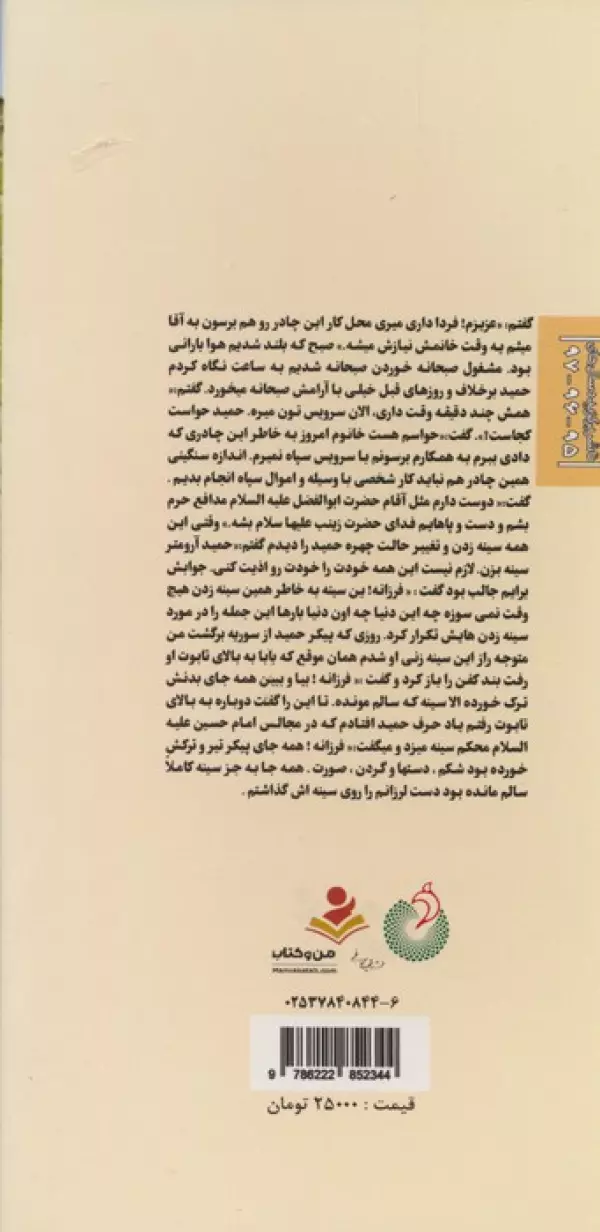 گفتم: «عزیزم! فردا داری میری محل کار این چادر رو هم برسون به آقا
میثم یه وقت خانمش نیازش میشه.» صبح که بلند شدیم هوا بارانی
بود. مشغول صبحانه خوردن صبحانه شدیم به ساعت نگاه کردم
حمید برخلاف و روزهای قبل خیلی با آرامش صبحانه میخورد. گفتم:«
همش چند دقیقه وقت داری، الان سرویس تون میره. حمید حواست
کجاست؟». گفت:«حواسم هست خانوم امروز به خاطر این چادری که
دادی ببرم به همکارم برسونم با سرویس سپاه نمیرم. اندازه سنگینی
همین چادر هم نباید کار شخصی با وسیله و اموال سپاه انجام بدیم.
گفت:« دوست دارم مثل آقام حضرت ابوالفضل علیه السلام مدافع حرم
بشم و دست و پاهایم فدای حضرت زینب علیها سلام بشه.» وقتی این
همه سینه زدن و تغییر حالت چهره حمید را دیدم گفتم:«حمید آرومتر
سینه بزن. لازم نیست این همه خودت را خودت رو اذیت کنی. جوابش
برایم جالب بود گفت: « فرزانه! ین سینه به خاطر همین سینه زدن هیچ
وقت نمی سوزه چه این دنیا چه اون دنیا بارها این جمله را در مورد
سینه زدن هایش تکرار کرد. روزی که پیکر حمید از سوریه برگشت من
متوجه راز این سینه زنی او شدم همان موقع که بابا به بالای تابوت او
رفت بند کفن را باز کرد و گفت :« فرزانه ! بیا و ببین همه جای بدنش
ترک خورده الا سینه که سالم مونده. تا این را گفت دوباره به بالای
تابوت رفتم یاد حرف حمید افتادم که در مجالس امام حسین علیه
السلام محکم سینه میزد و میگفت:« فرزانه ! همه جای پیکر تیر و ترکش
خورده بود شکم ، دستها و گردن ، صورت . همه جا به جز سینه کاملاً
سالم مانده بود دست لرزانم را روی سینه اش گذاشتم .
۹۷-۹۶-۹۵
من و کتاب
Manvaketab.com
۰۲۵۳۷۸۴۰۸۴۴-۶
9 786222 852344
قیمت : ۲۵۰۰۰ تومان